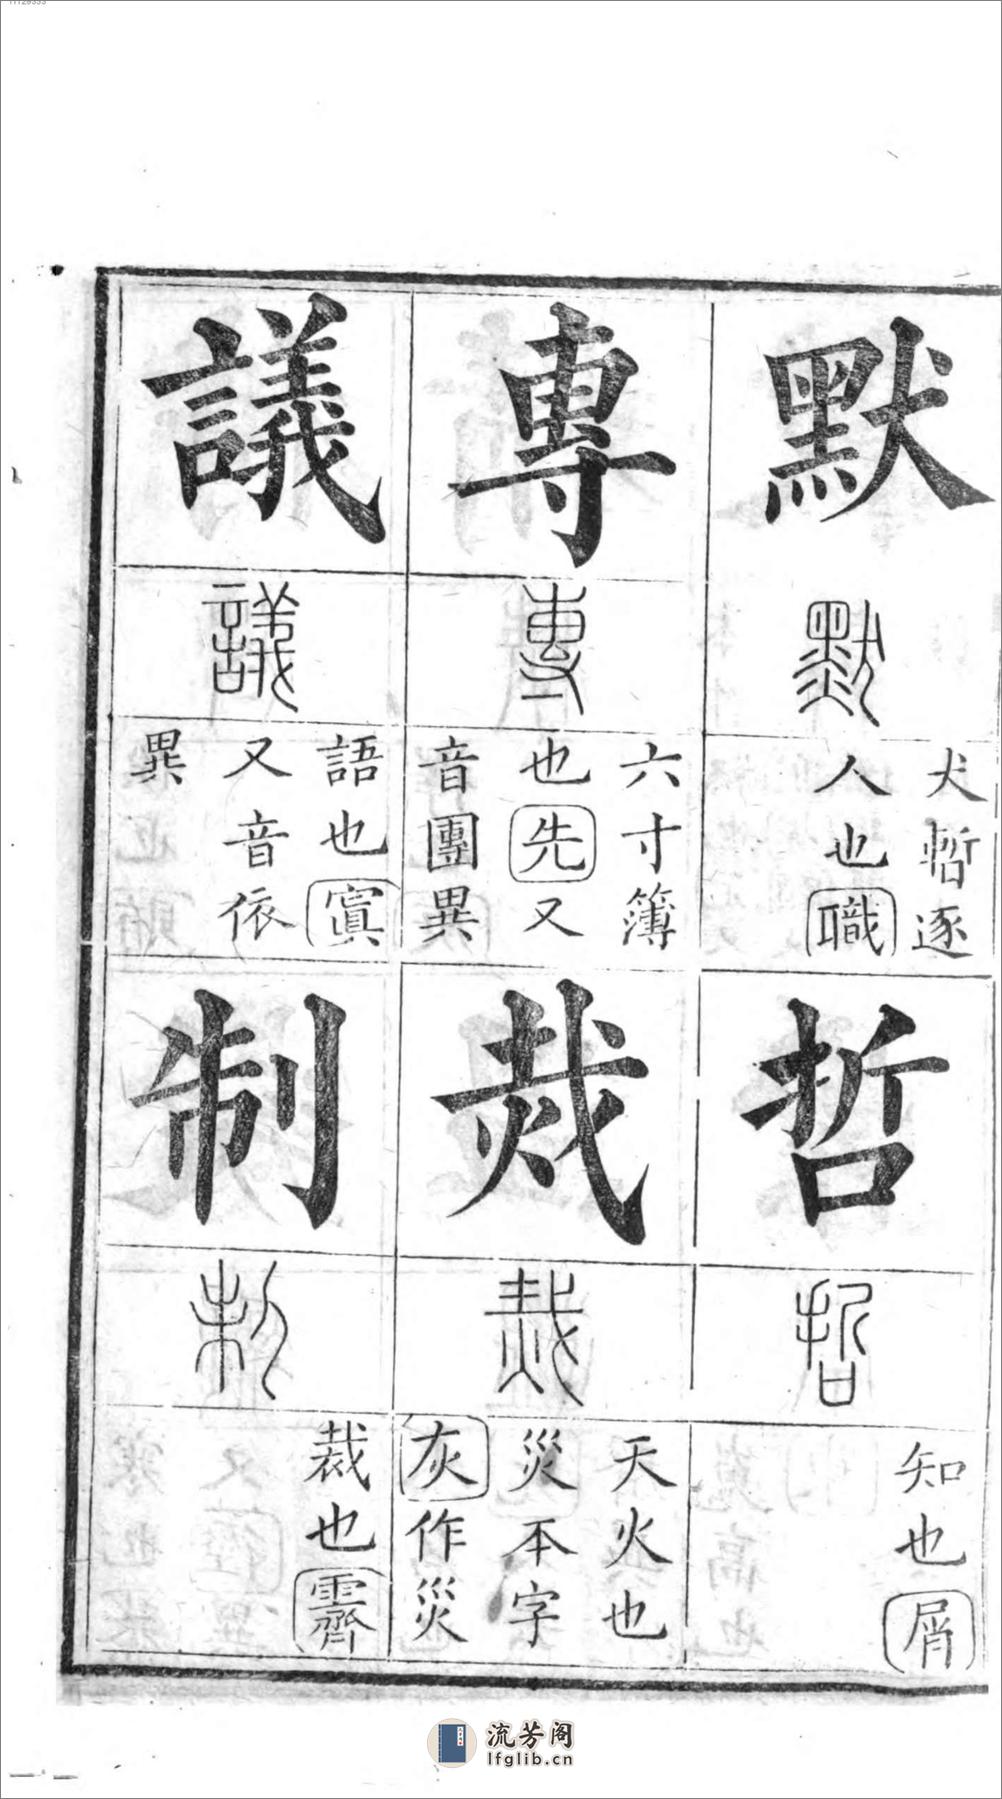 默
默
犬暫逐
人也職
哲
哲
知也屑
專
專
六寸簿
也先又
音團異
烖
烖
天火也
災本字
灰作災
議
議
語也寘
又音依
異
制
制
裁也霽
流芳阁
lfglib.cn